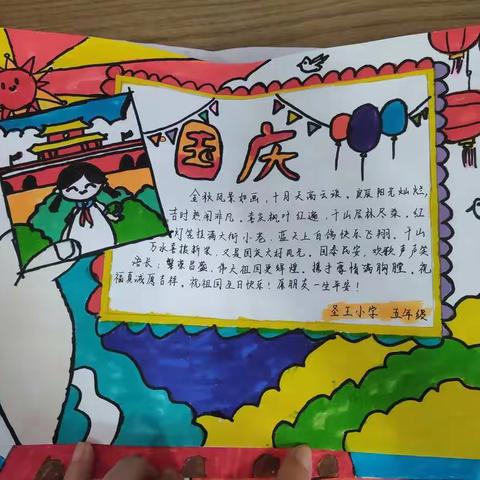 国庆
金秋风景如画，十月天高云淡。良辰阳光灿烂，
吉时热闹非凡。香炙枫叶红遍，千山层林尽染。红
灯笼挂满大街小巷，蓝天上白鸽快乐飞翔。千山
万水喜披新装，又是国庆大好时光。国泰民安，欢歌声声笑
语长；繁荣昌盛，伟大祖国更辉煌。携手豪情满胸膛。祝
福真诚属吉祥。祝祖国生日快乐！愿朋友一生平安！
圣王小学 五年级